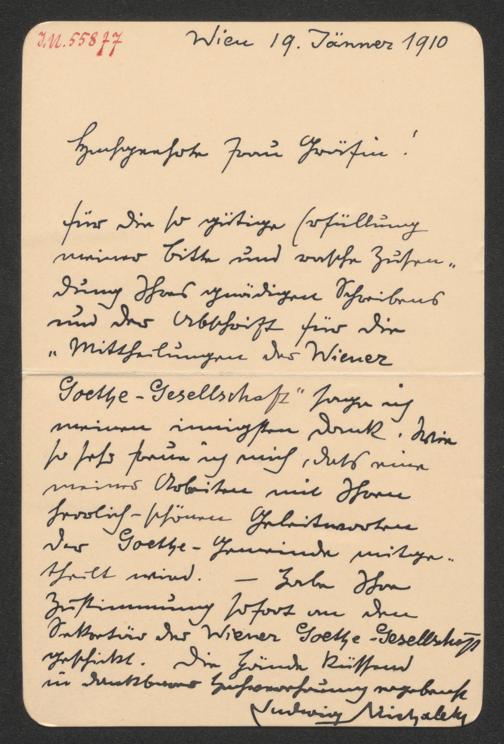 I.N. 55877
Wien 19. Jänner 1910
Hochgeehrte Frau Gräfin!
für die so gütige Erfüllung
meiner Bitte und rasche Zusen„
dung Ihres gnädigen Schreibens
und der Abschrift für die
„Mittheilungen der Wiener
Goethe-Gesellschaft" sage ich
meinen innigsten Dank. Wie
so sehr freue ich mich, daß eine
meiner Arbeiten mit Ihren
herrlich-schönen Geleitworten
der Goethe-Gemeinde mitge„
theilt wird. — Habe Ihre
Zustimmung sofort an den
Sekretär der Wiener Goethe-Gesellschaft
geschickt. Die Hände küssend
in dankbarer Hochverehrung ergebenst
Ludwig Michalek